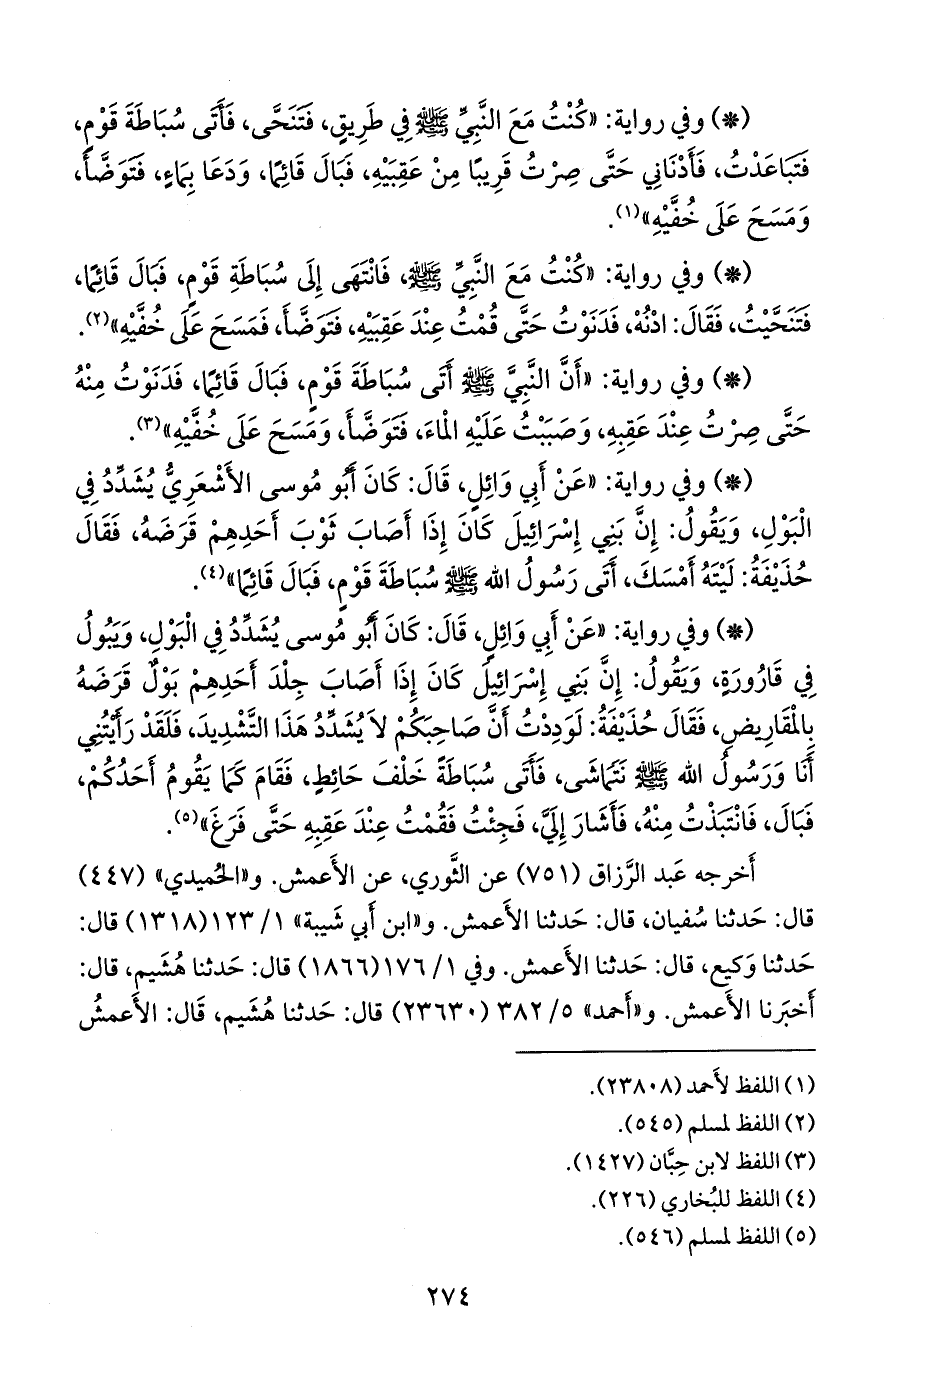 (*) وفي رواية: «كُنْتُ مَعَ النَّبِيِّ ﷺ فِي طَرِيقٍ، فَتَنَحَّى، فَأَتَى سُبَاطَةَ قَوْمٍ،
فَتَبَاعَدْتُ، فَأَدْنَانِي حَتَّى صِرْتُ قَرِيبًا مِنْ عَقِبَيْهِ، فَبَالَ قَائِمًا، وَدَعَا بِمَاءٍ، فَتَوَضَّأَ،
وَمَسَحَ عَلَى خُفَّيْهِ»(١).
(*) وفي رواية: «كُنْتُ مَعَ النَّبِيِّ ﷺ، فَانْتَهَى إِلَى سُبَاطَةِ قَوْمٍ، فَبَالَ قَائِمًا،
فَتَنَحَّيْتُ، فَقَالَ: ادْنُهْ، فَدَنَوْتُ حَتَّى قُمْتُ عِنْدَ عَقِبَيْهِ، فَتَوَضَّأَ، فَمَسَحَ عَلَى خُفَّيْهِ»(٢).
(*) وفي رواية: «أَنَّ النَّبِيَّ ﷺ أَتَى سُبَاطَةَ قَوْمٍ، فَبَالَ قَائِمًا، فَدَنَوْتُ مِنْهُ
حَتَّى صِرْتُ عِنْدَ عَقِبِهِ، وَصَبَبْتُ عَلَيْهِ الْمَاءَ، فَتَوَضَّأَ، وَمَسَحَ عَلَى خُفَّيْهِ»(٣).
(*) وفي رواية: «عَنْ أَبِي وَائِلٍ، قَالَ: كَانَ أَبُو مُوسى الأَشْعَرِيُّ يُشَدِّدُ فِي
الْبَوْلِ، وَيَقُولُ: إِنَّ بَنِي إِسْرَائِيلَ كَانَ إِذَا أَصَابَ ثَوْبَ أَحَدِهِمْ قَرَضَهُ، فَقَالَ
حُذَيْفَةُ: لَيْتَهُ أَمْسَكَ، أَتَى رَسُولُ الله ﷺ سُبَاطَةَ قَوْمٍ، فَبَالَ قَائِمًا»(٤).
(*) وفي رواية: «عَنْ أَبِي وَائِلٍ، قَالَ: كَانَ أَبُو مُوسى يُشَدِّدُ فِي الْبَوْلِ، وَيَبُولُ
فِي قَارُورَةٍ، وَيَقُولُ: إِنَّ بَنِي إِسْرَائِيلَ كَانَ إِذَا أَصَابَ جِلْدَ أَحَدِهِمْ بَوْلٌ قَرَضَهُ
بِالْمَقَارِيضِ، فَقَالَ حُذَيْفَةُ: لَوَدِدْتُ أَنَّ صَاحِبَكُمْ لاَ يُشَدِّدُ هَذَا التَّشْدِيدَ، فَلَقَدْ رَأَيْتُنِي
أَنَا وَرَسُولُ الله ﷺ نَتَمَاشَى، فَأَتَى سُبَاطَةً خَلْفَ حَائِطٍ، فَقَامَ كَمَا يَقُومُ أَحَدُكُمْ،
فَبَالَ، فَانْتَبَذْتُ مِنْهُ، فَأَشَارَ إِلَيَّ، فَجِئْتُ فَقُمْتُ عِنْدَ عَقِبِهِ حَتَّى فَرَغَ»(٥).
أَخرجه عَبد الرَّزاق (٧٥١) عن الثَّوري، عن الأَعمش. و«الحُميدي» (٤٤٧)
قال: حَدثنا سُفيان، قال: حَدثنا الأَعمش. و«ابن أَبي شَيبة» ١/ ١٢٣(١٣١٨) قال:
حَدثنا وَكيع، قال: حَدثنا الأَعمش. وفي ١/ ١٧٦(١٨٦٦) قال: حَدثنا هُشَيم، قال:
أَخبَرنا الأَعمش. و«أَحمد» ٥/ ٣٨٢ (٢٣٦٣٠) قال: حَدثنا هُشَيم، قَال: الأَعمشُ
(١) اللفظ لأَحمد (٢٣٨٠٨).
(٢) اللفظ لمسلم (٥٤٥).
(٣) اللفظ لابن حِبَّان (١٤٢٧).
(٤) اللفظ للبُخاري (٢٢٦).
(٥) اللفظ لمسلم (٥٤٦).
٢٧٤